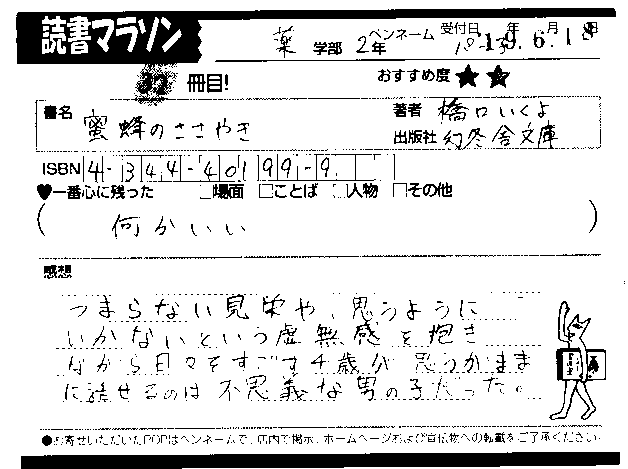 読書マラソン
薬 学部 2年 ペンネーム 受付日 年 月 日
19.6.18
冊目! おすすめ度 ★★
書名 蜜蜂のささやき 著者 橋口いくよ
出版社 幻冬舎文庫
ISBN 4-344-40199-9
♥一番心に残った □場面 □ことば □人物 □その他
( 何かいい )
感想
つまらない見栄や、思うように
いかないという虚無感を抱き
ながら日々をすごす千歳が思うがまま
に話せるのは不思議な男の子だった。
●お寄せいただいたPOPはペンネームで、店内で掲示、ホームページおよび宣伝物への転載をご了承ください。